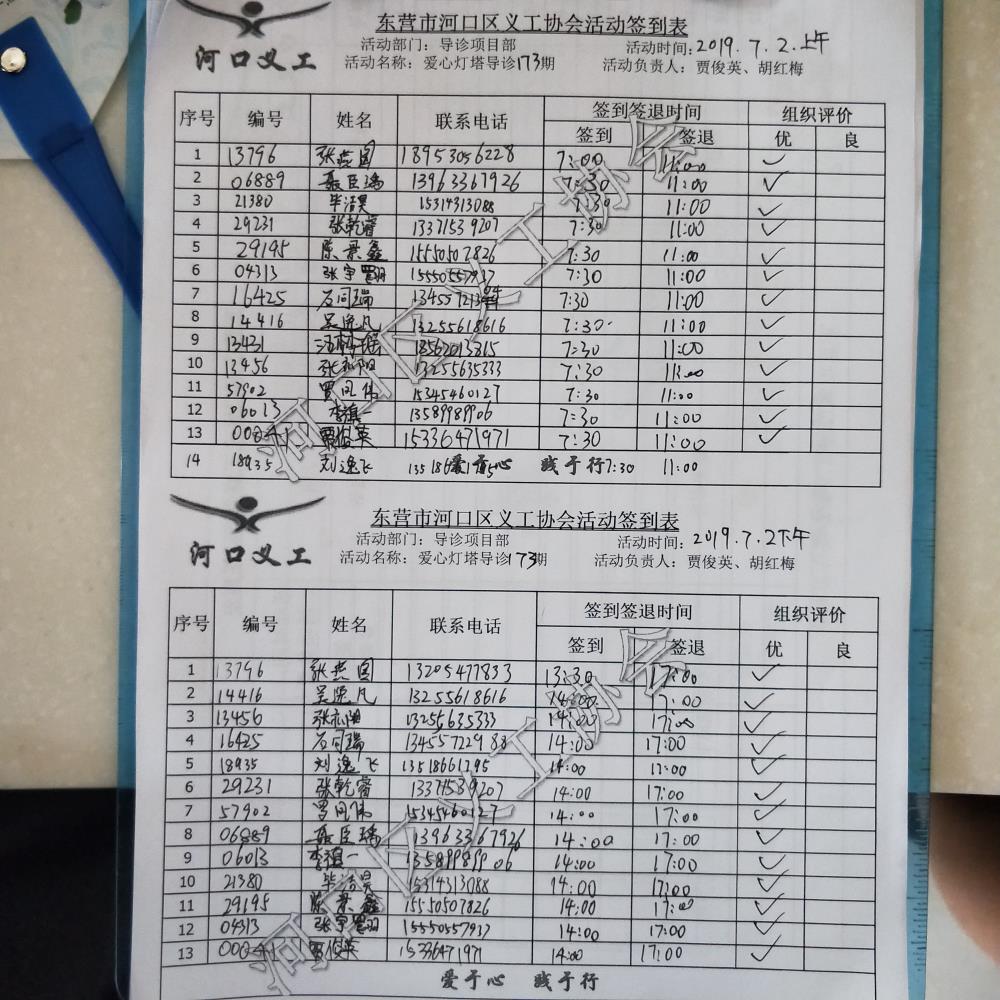 东营市河口区义工协会活动签到表
河口义工
活动部门：导诊项目部 活动时间：2019.7.2.上午
活动名称：爱心灯塔导诊173期 活动负责人：贾俊英、胡红梅
序号 编号 姓名 联系电话 签到签退时间 组织评价
签到 签退 优 良
1 13796 张燕国 18953056228 7:00 11:00 ✓
2 06889 聂臣瑀 13963367926 7:30 11:00 ✓
3 21380 毕洁昊 15314313088 7:30 11:00 ✓
4 29231 张乾睿 13371539207 7:30 11:00 ✓
5 29195 陈景鑫 15550507826 7:30 11:00 ✓
6 04313 张宇 15550557937 7:30 11:00 ✓
7 16425 石同瑞 7:30 11:00 ✓
8 14416 吴逸凡 13255618616 7:30 11:00 ✓
9 13431 18562013315 7:30 11:00 ✓
10 13456 张 阳 13255635333 7:30 11:00 ✓
11 57902 15345460127 7:30 11:00 ✓
12 06013 李禛一 13589989906 7:30 11:00 ✓
13 贾俊英 15336471971 7:30 11:00 ✓
14 18935 刘逸飞 7:30 11:00
爱于心 践于行
河口区义工协会
东营市河口区义工协会活动签到表
河口义工
活动部门：导诊项目部 活动时间：2019.7.2下午
活动名称：爱心灯塔导诊173期 活动负责人：贾俊英、胡红梅
序号 编号 姓名 联系电话 签到签退时间 组织评价
签到 签退 优 良
1 13796 张燕国 13205477833 13:30 17:00 ✓
2 14416 吴逸凡 13255618616 14:00 17:00 ✓
3 13456 张 阳 13255635333 14:00 17:00 ✓
4 16425 石同瑞 13455722988 14:00 17:00 ✓
5 18935 刘逸飞 13518661795 14:00 17:00 ✓
6 29231 张乾睿 13371539207 14:00 17:00 ✓
7 57902 15345460127 14:00 17:00 ✓
8 06889 聂臣瑀 13963367926 14:00 17:00 ✓
9 06013 李禛一 13589989906 14:00 17:00 ✓
10 21380 毕洁昊 15314313088 14:00 17:00 ✓
11 29195 陈景鑫 15550507826 14:00 17:00 ✓
12 04313 张宇 15550557937 14:00 17:00 ✓
13 贾俊英 15336471971 14:00 17:00 ✓
爱于心 践于行
河口区义工协会